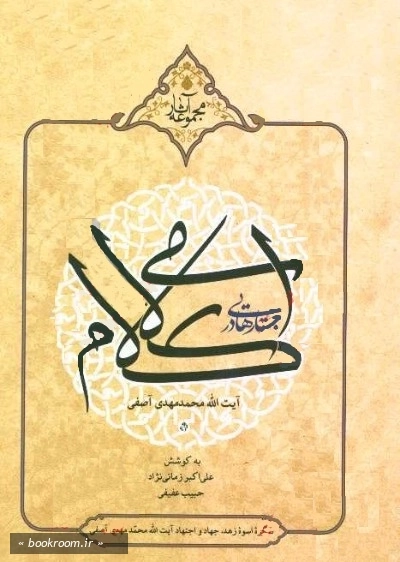 مجموعه آثار
جستارهایی در
کلام اسلامی
آیت الله محمدمهدی آصفی
به کوشش
علی‌اکبر زمانی‌نژاد
حبیب عفیفی
کنگرۀ اسوۀ زهد، جهاد و اجتهاد آیت الله محمّد مهدی آصفی
« bookroom.ir »